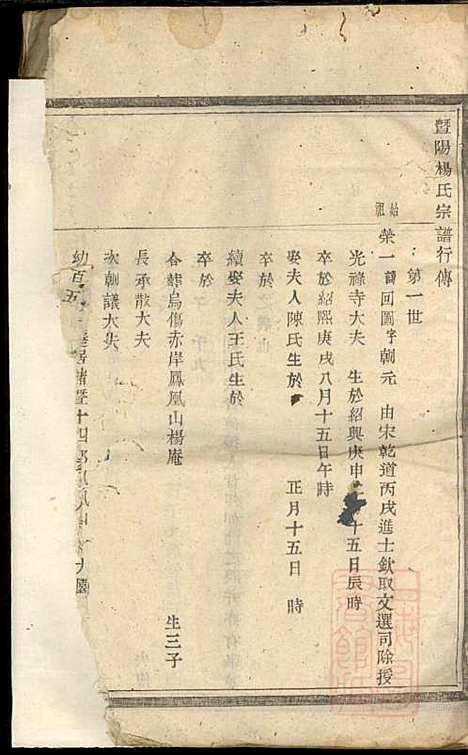 暨陽楊氏宗譜行傳
第一世
始祖
榮一諱回圖字朝元 由宋乾道丙戌進士欽取文選司除授
光祿寺大夫 生於紹興庚申 十五日辰時
卒於紹熙庚戌八月十五日午時
娶夫人陳氏生於 正月十五日 時
卒於
續娶夫人王氏生於
卒於
合葬烏傷赤岸鳳凰山楊庵 生三子
長承散大夫
次朝議大夫
幼百五 居諸暨十四都